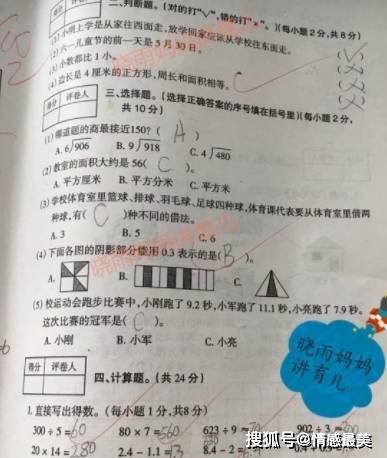 二、判断题。(对的打"√",错的打"×"。)(每小题2分,共8分)
(1)小明上学是从家往西面走,放学回家应该从学校往东面走。 (√)
(2)六一儿童节的前一天是5月30日。 (×)
(3)小数都比1小。 (×)
(4)边长是4厘米的正方形,周长和面积相等。 (×)
得分 评卷人
三、选择题。(选择正确答案的序号填在括号里)(每小题2分,
共10分)
(1)哪道题的商最接近150?( A )
A. 6√906 B. 9√918 C. 4√480
(2)教室的面积大约是56( C )。
A. 平方厘米 B. 平方分米 C. 平方米
(3)学校体育室里篮球、排球、羽毛球、足球四种球,体育课代表要从体育室里借两
种球,有( C )种不同的借法。
A. 3 B. 5 C. 6
(4)下面各图的阴影部分能用0.3表示的是( B )。
A. B. C.
(5)校运动会跑步比赛中,小刚跑了9.2秒,小军跑了11.1秒,小亮跑了7.9秒。
这次比赛的冠军是( C )。
A. 小刚 B. 小军 C. 小亮
得分 评卷人
四、计算题。(共24分)
1. 直接写出得数。(每小题1分,共8分)
300÷5=60 80×7=560 623÷9≈ 902÷3≈300
20×14=280 2.4-1.1=1.3 8.4-2=
晓雨妈妈
讲育儿
搜狐号@情感最美